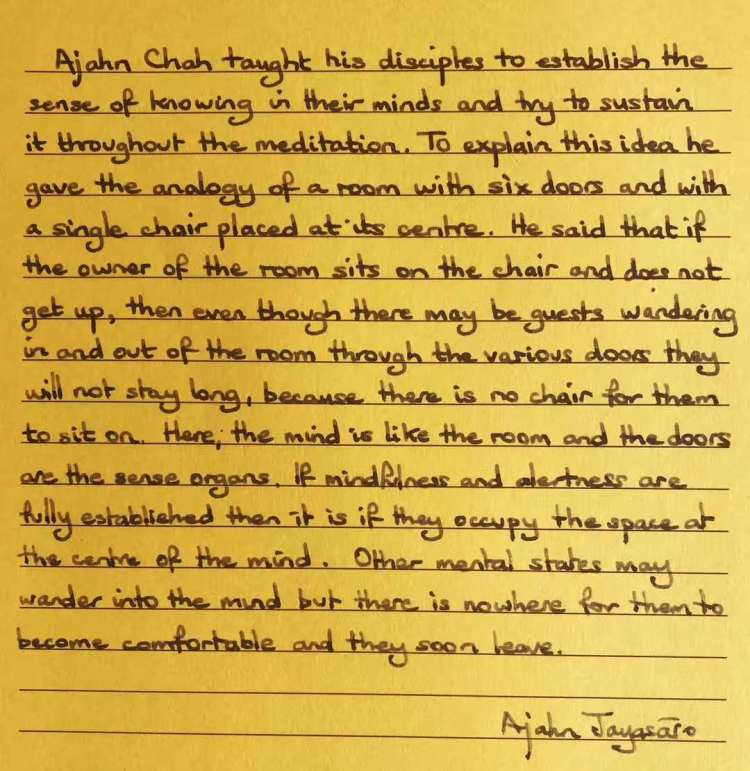 Ajahn Chah taught his disciples to establish the
sense of knowing in their minds and try to sustain
it throughout the meditation. To explain this idea he
gave the analogy of a room with six doors and with
a single chair placed at its centre. He said that if
the owner of the room sits on the chair and does not
get up, then even though there may be guests wandering
in and out of the room through the various doors they
will not stay long, because there is no chair for them
to sit on. Here, the mind is like the room and the doors
are the sense organs. If mindfulness and alertness are
fully established then it is if they occupy the space at
the centre of the mind. Other mental states may
wander into the mind but there is nowhere for them to
become comfortable and they soon leave.
Ajahn Jayasāro